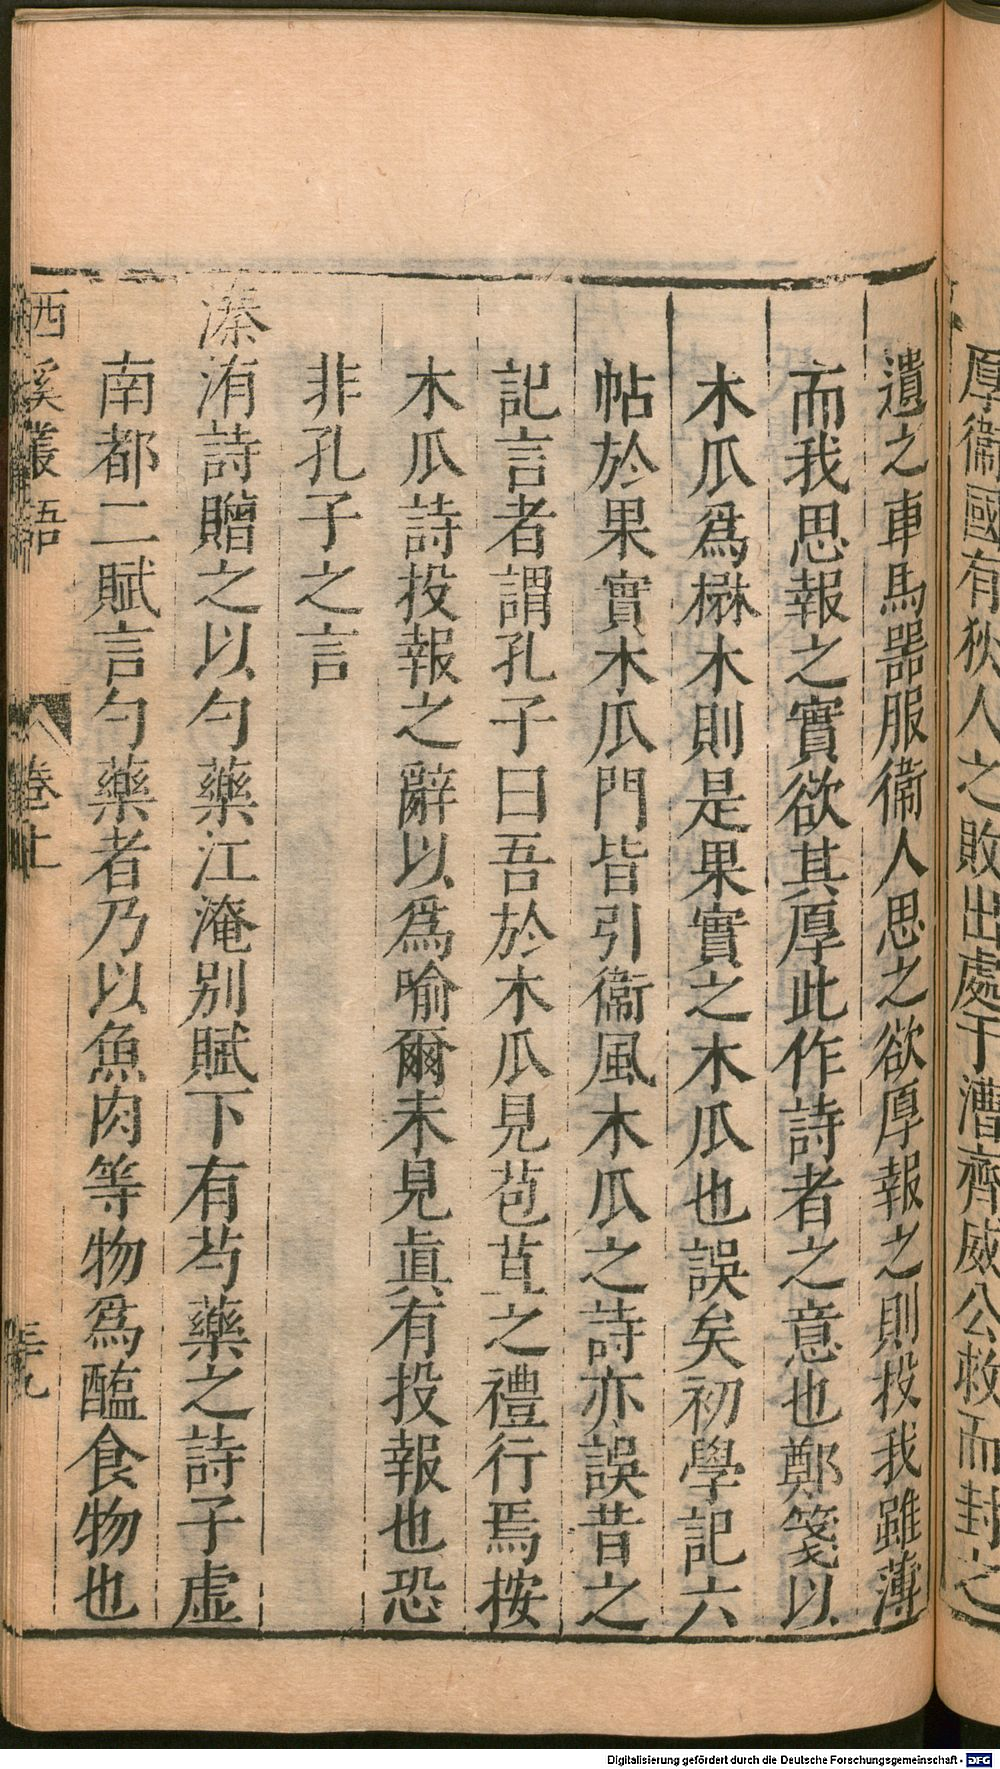 厚衞國有狄人之敗出處于漕齊威公救而封之
遺之車馬器服衞人思之欲厚報之則投我雖薄
而我思報之實欲其厚此作詩者之意也鄭箋以
木瓜爲楙木則是果實之木瓜也誤矣初學記六
帖於果實木瓜門皆引衞風木瓜之詩亦誤昔之
記言者謂孔子曰吾於木瓜見苞苴之禮行焉按
木瓜詩投報之辭以爲喻爾未見眞有投報也恐
非孔子之言
溱洧詩贈之以勺藥江淹别賦下有芍藥之詩子虛
南都二賦言勺藥者乃以魚肉等物爲醢食物也
西溪叢語 卷上 三九
Digitalisierung gefördert durch die Deutsche Forschungsgemeinschaft - DFG